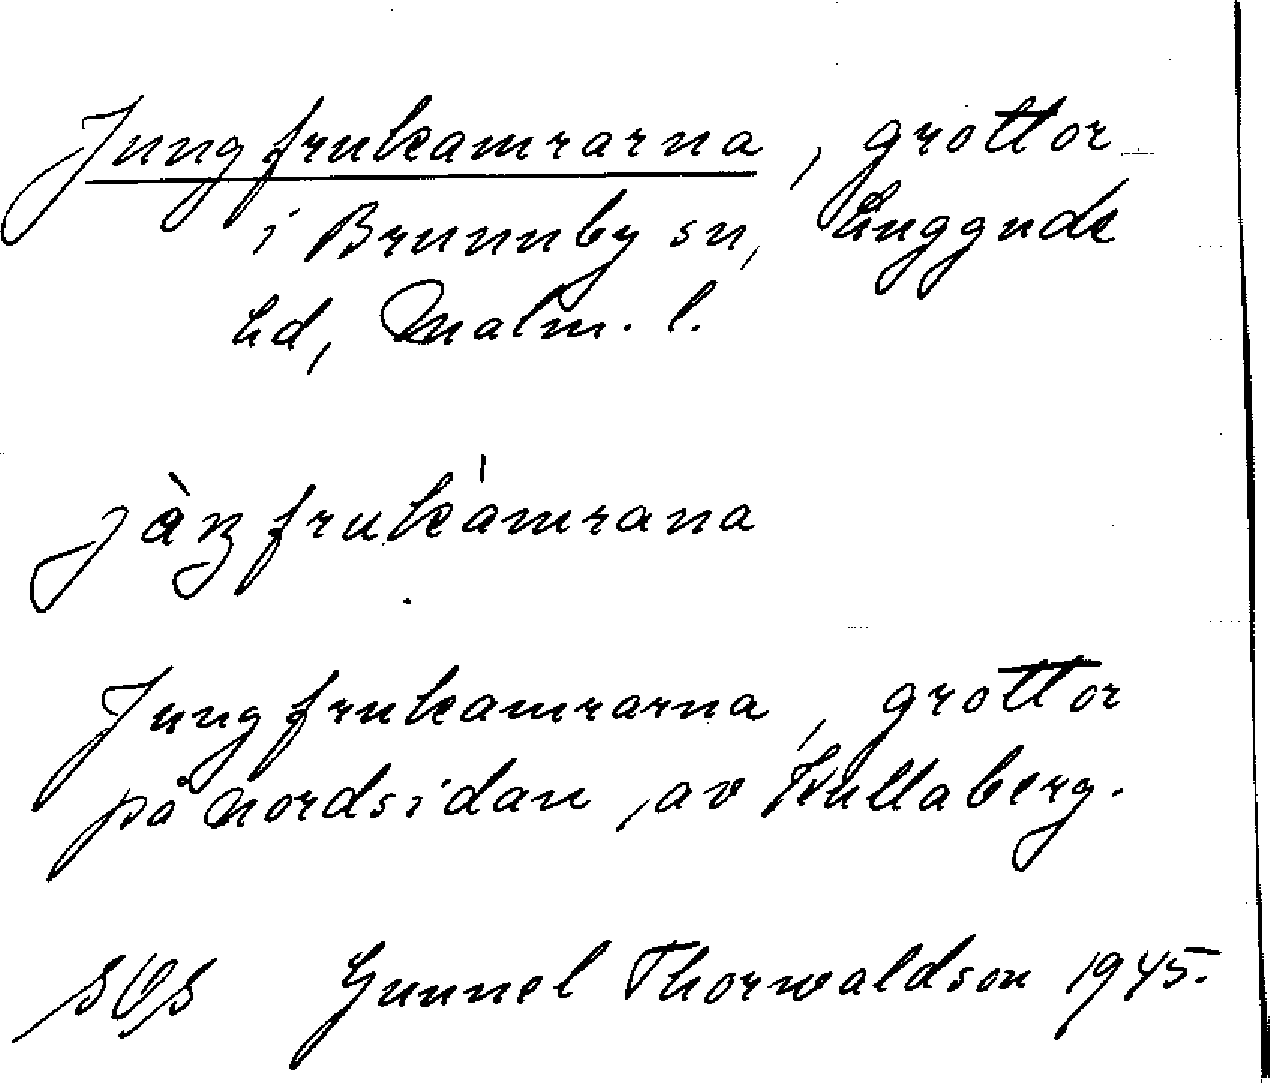 Jungfrukamrarna, grottor
i Brunnby sn, Luggude
hd, Malm. l.
jàŋfrukámrana
Jungfrukamrarna, grottor
på nordsidan av Kullaberg.
Gunnel Thorwaldson 1945.